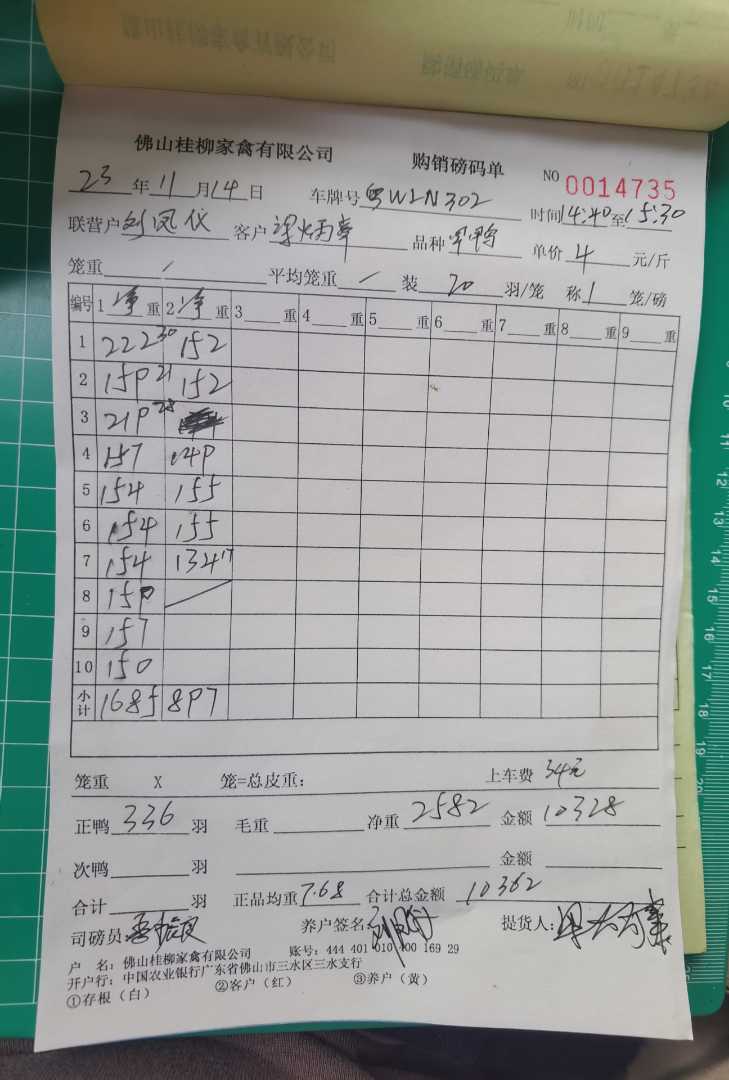 佛山桂柳家禽有限公司 购销磅码单 NO 0014735
23年11月14日 车牌号粤WLN302 时间14:40至15:30
联营户刘凤仪 客户 品种 单价4元/斤
笼重/ 平均笼重/ 装20羽/笼 称1笼/磅
编号 1净重 2净重 3重 4重 5重 6重 7重 8重 9重
1 222 30 152
2 159 21 152
3 219 28
4 157 149
5 154 155
6 154 155
7 154 134 17
8 159
9 157
10 150
小计 1685 897
笼重 X 笼=总皮重: 上车费 34元
正鸭336羽 毛重 净重2582 金额10328
次鸭 羽 金额
合计 羽 正品均重7.68 合计总金额10362
司磅员: 养户签名: 提货人:
户 名: 佛山桂柳家禽有限公司 账号: 444 401 010 400 169 29
开户行: 中国农业银行广东省佛山市三水区三水支行
①存根(白) ②客户(红) ③养户(黄)